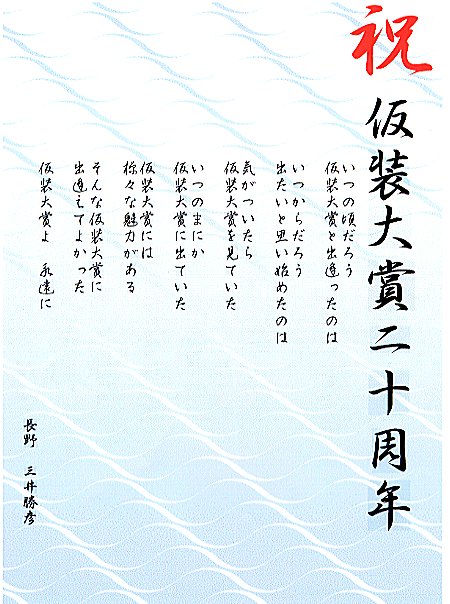 祝
仮装大賞二十周年
いつの頃だろう
仮装大賞と出逢ったのは
いつからだろう
出たいと思い始めたのは
気がついたら
仮装大賞を見ていた
いつのまにか
仮装大賞に出ていた
仮装大賞には
様々な魅力がある
そんな仮装大賞に
出逢えてよかった
仮装大賞よ 永遠に
長野 三井勝彦